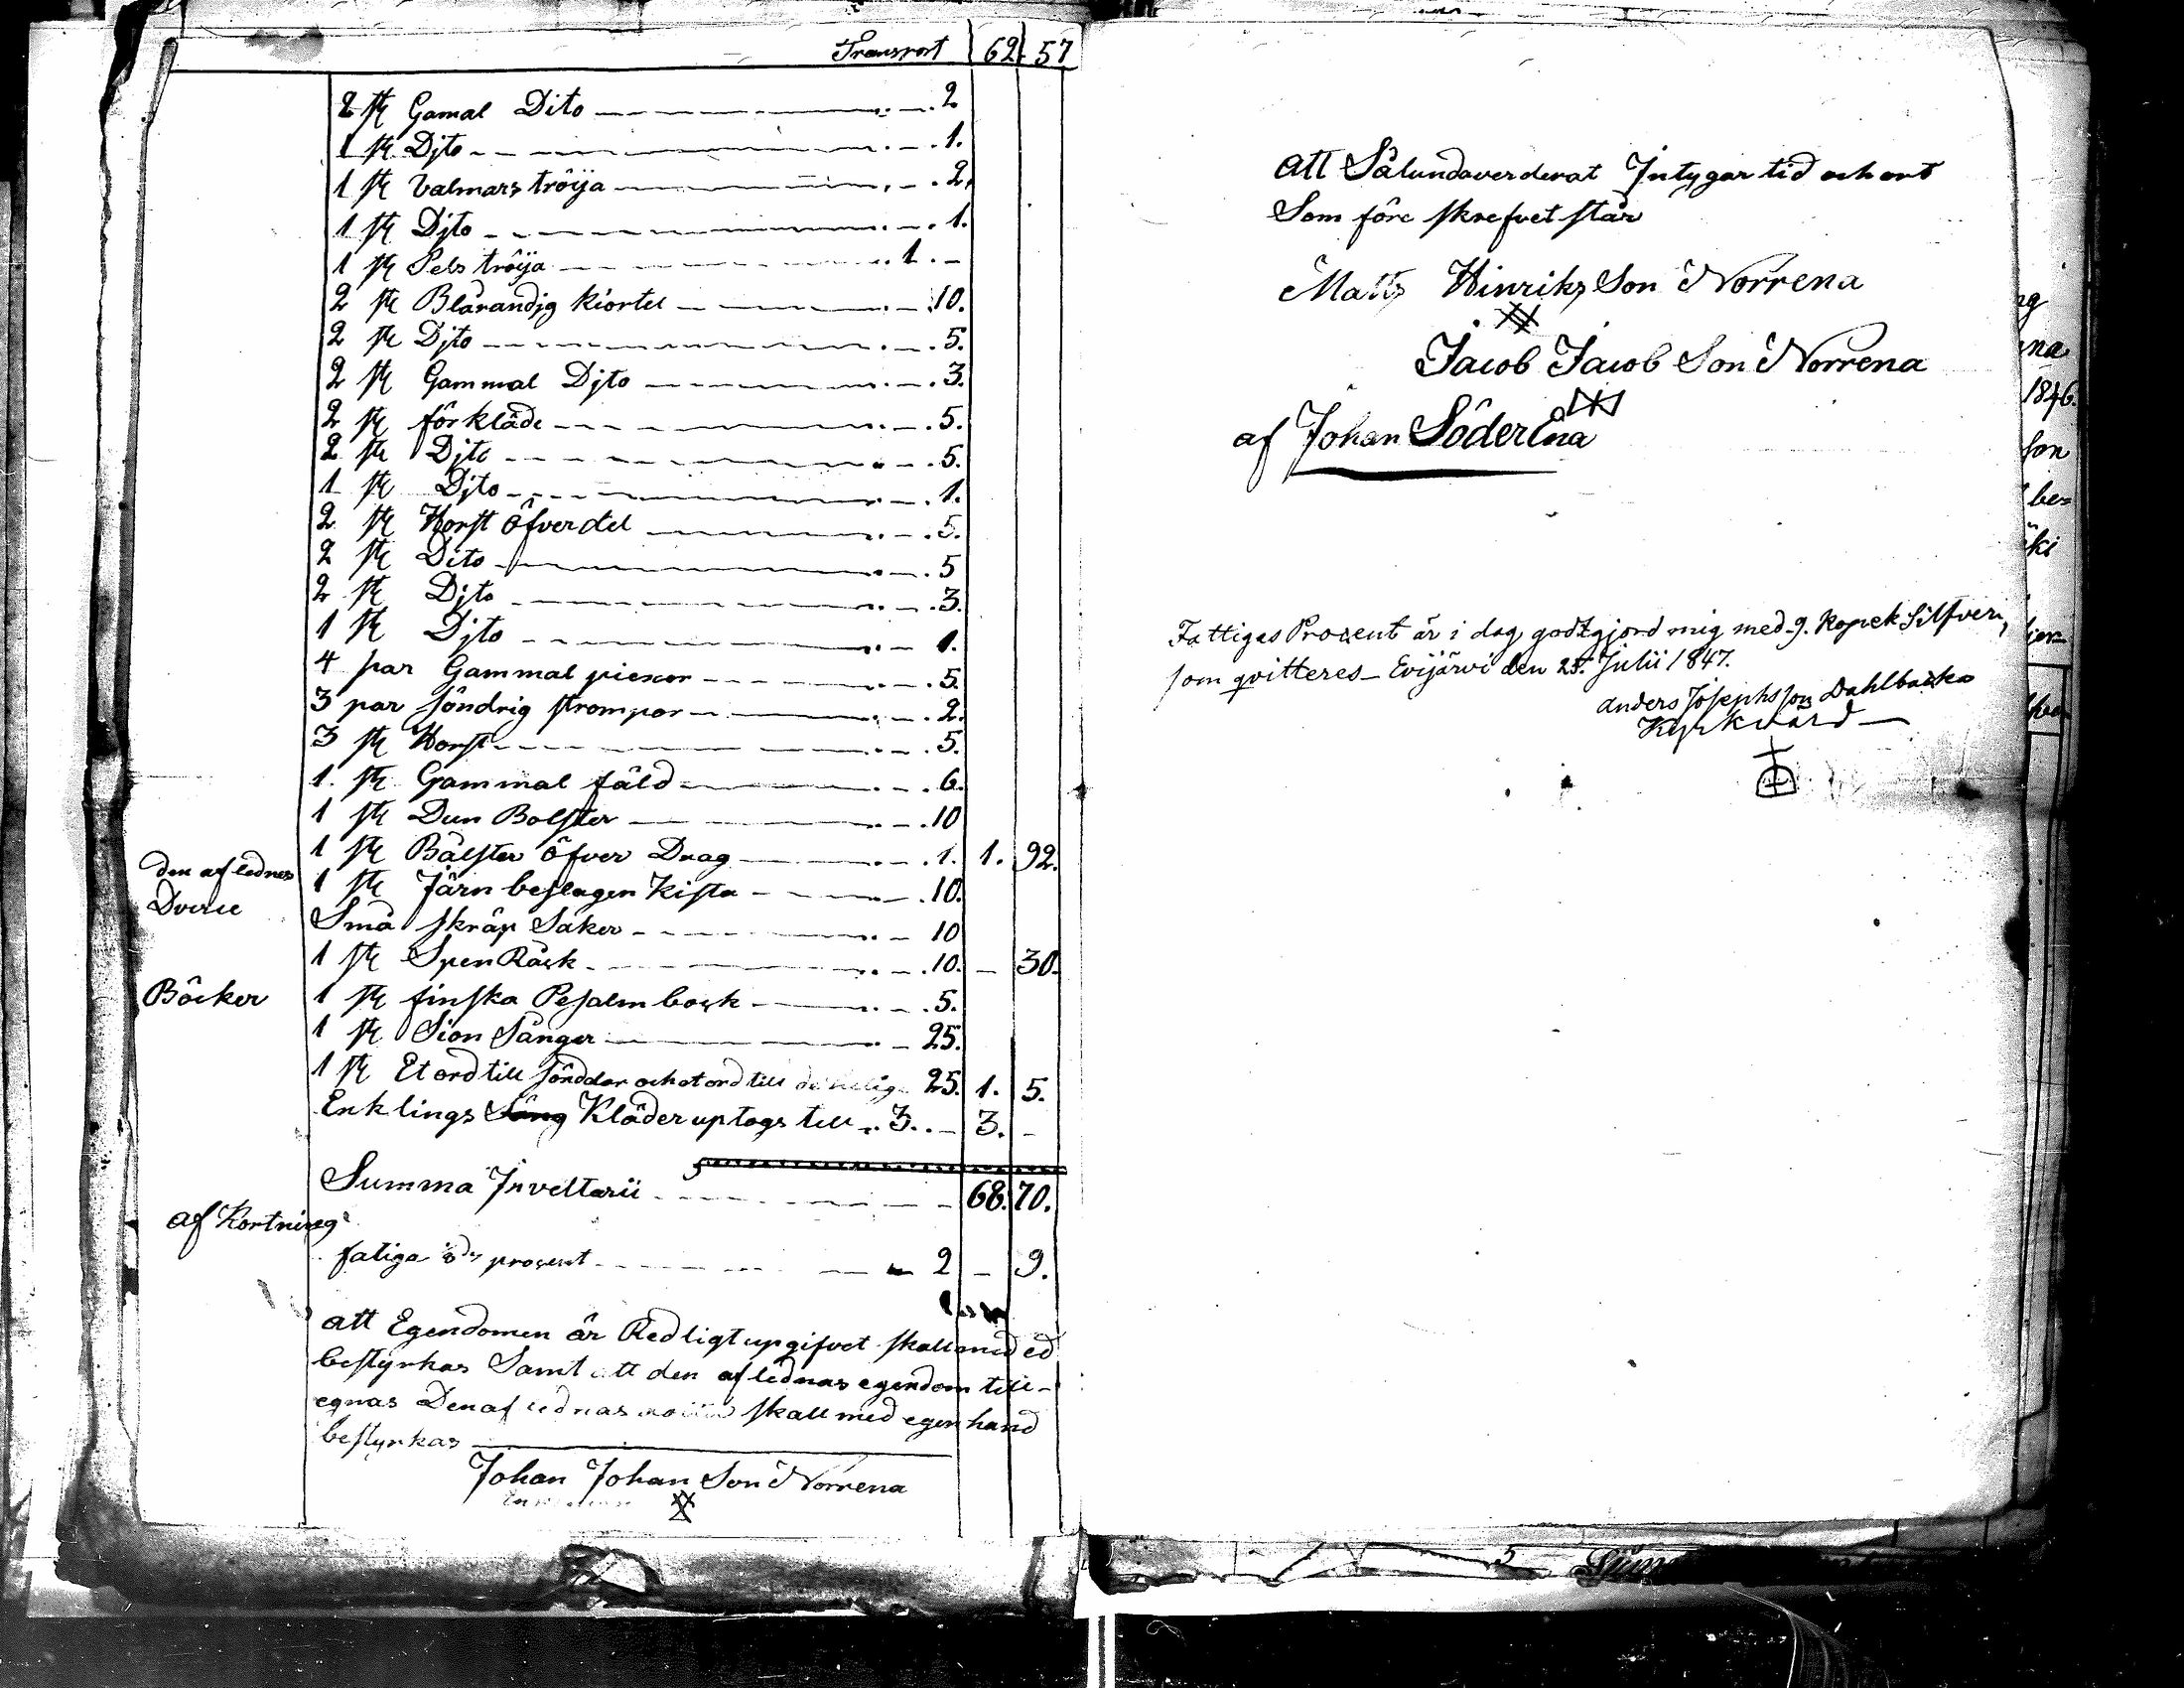 Transport 62. 57
2 st Gamal Dito . 2
1 st Djto . 1.
1 st Valmars tröija . 2.
1 st Djto . 1.
1 st Pels tröija . 1. -
2 st Blårandig kiortel . 10.
2 st Djto . 5.
2 st Gammal Djto . 3.
2 st förkläde . 5.
2 st Djto . 5.
1 st Djto . 1.
2 st Horst öfverdel . 5.
2 st Dito . 5
2 st Djto . 3.
1 st Djto . 1.
4 par Gammal piexor . 5.
3 par söndrig strompor . 2.
3 st Horst . 5.
1. st Gammal fäld . 6.
1 st Dun Bolster . 10
1 st Bålster öfver Drag . 1. 1. 92.
den aflednes
Dverie
1 st Järn beslagen Kista . 10.
Små skräp Saker - 10
1 st Spen Råck . 10. - 30.
Böcker 1 st finska Pesalm bock . 5.
1 st Sion Sånger - 25.
1 st Et ord till sönddar och et ord till de helig 25. 1. 5.
Enklings Säng Kläder uptogs till .. 3. - 3. -
Summa Jnveltarii 68. 70.
af Kortning
fatiga prosent 2 - 9.
att Egendomen är Redligt upgifvet skall med ed
bestyrkas Samt att den aflednas egendom till-
egnas Den aflednas skall med egen hand
bestyrkas
Johan Johan Son Norrena
att Sålundaverderat Jntygar tid och ort
Som före skrefvet står
Matts Hinriks Son Norrena
Jacob Jacob Son Norrena
af Johan SöderEna
Fattigas Prosent är i dag godtgjord mig med 9. Kopek Silfver,
som qvitteres - Evijärvi den 25. Julii 1847.
Anders Josephsson Dahlbacka
Kyrkvärd
ng
na
1846.
son
be=
ki